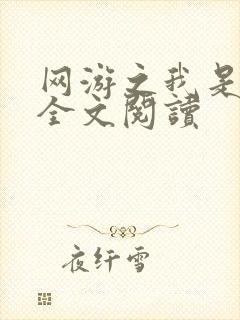 网游之我是
全文閱讀
夜纤雪